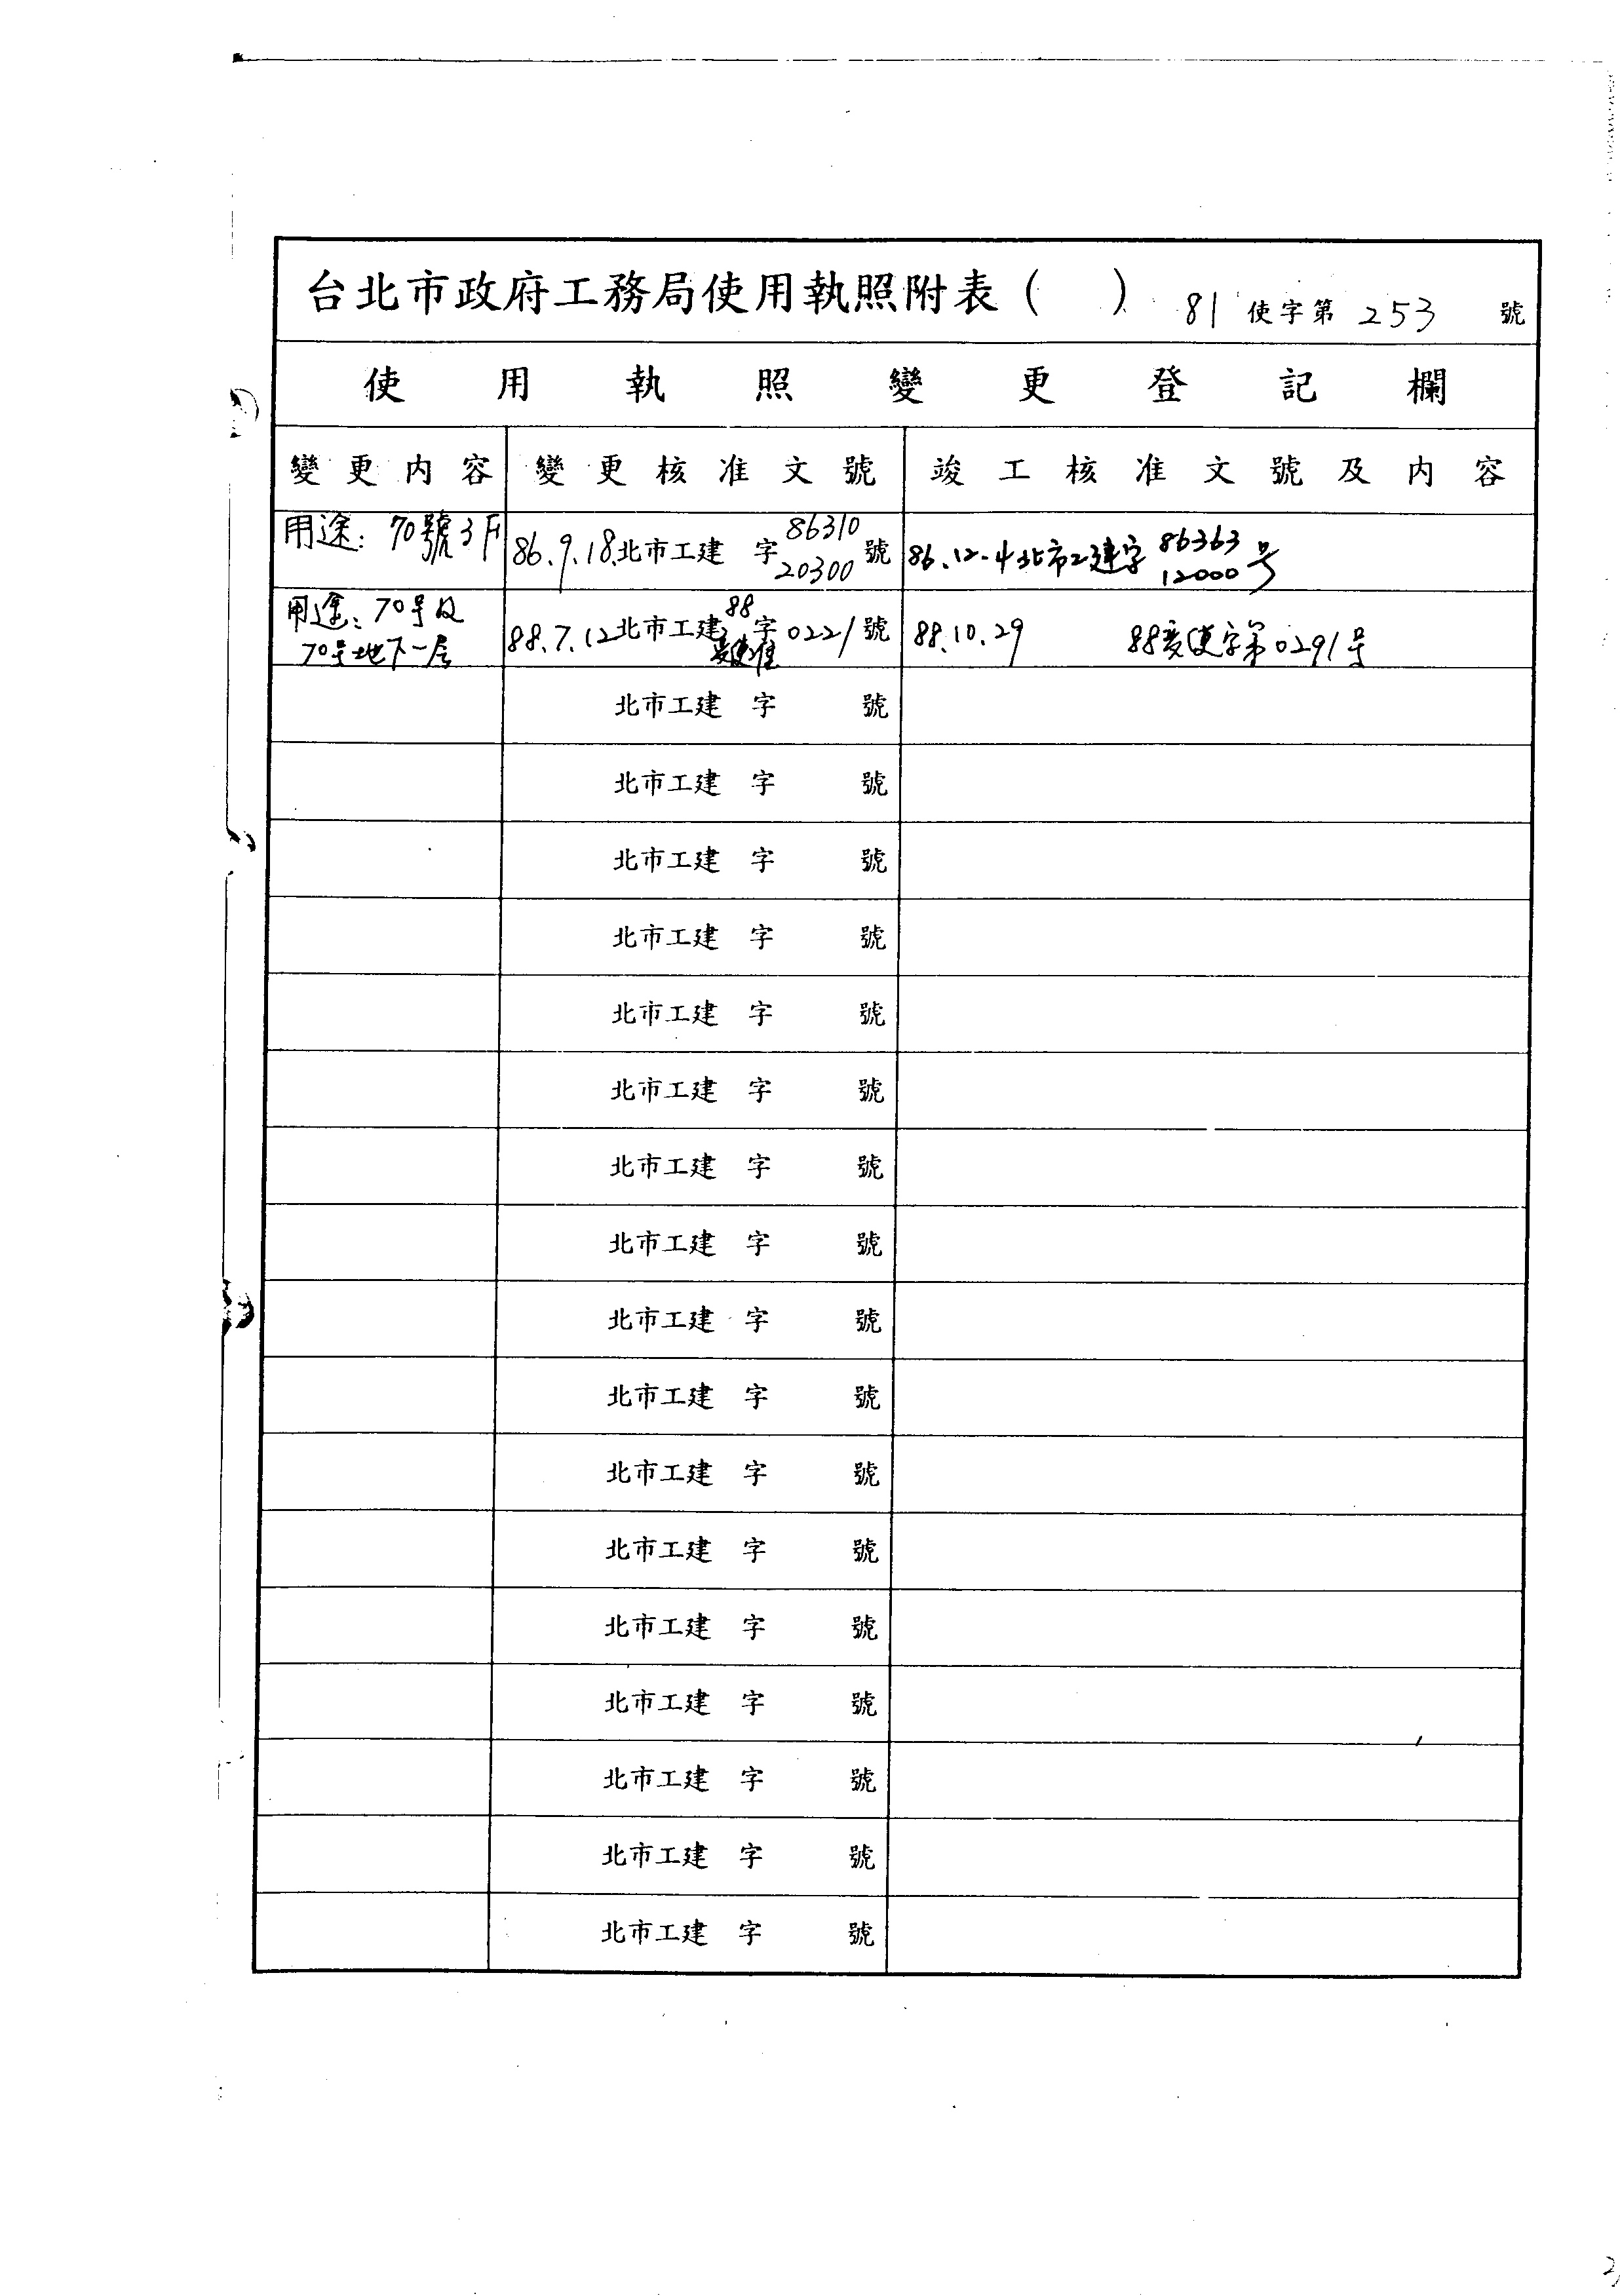 台北市政府工務局使用執照附表( ) 81 使字第 253 號
使用執照變更登記欄
變更內容 變更核准文號 竣工核准文號及內容
用途：70號3F 86.9.18.北市工建 字 8631020300 號 86.12.4北市工建字 8636312000 号
用途：70号及70号地下一层 88.7.12北市工建 88 字 0221號 88.10.29 88變使字第0291号
北市工建 字 號
北市工建 字 號
北市工建 字 號
北市工建 字 號
北市工建 字 號
北市工建 字 號
北市工建 字 號
北市工建 字 號
北市工建 字 號
北市工建 字 號
北市工建 字 號
北市工建 字 號
北市工建 字 號
北市工建 字 號
北市工建 字 號
北市工建 字 號
北市工建 字 號